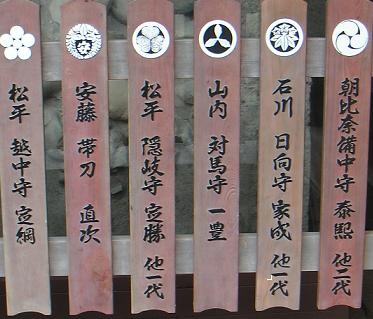 朝比奈備中守 泰熙 他二代
石川 日向守 家成 他一代
山内 対馬守 一豊
松平 隠岐守 定勝 他一代
安藤 帯刀 直次
松平 越中守 定綱